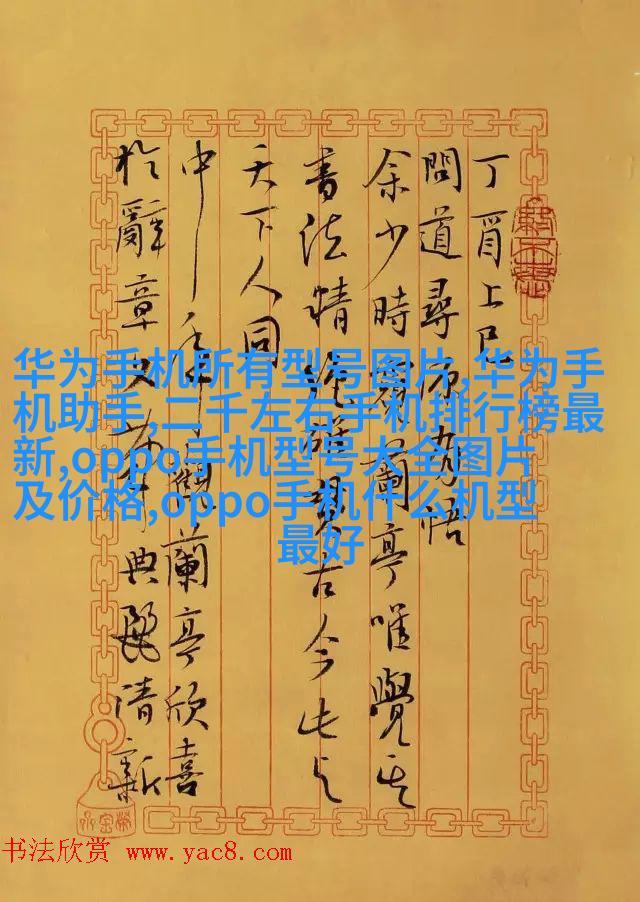 丁酉上巳
問道尋源有悟
余少時習蘭亭唯覺其
書法精絕雄冠古今
天下人同
中年後觀蘭亭欣喜
於辭章文
典麗清新
华为手机所有型号图片,华为手
机助手,二千左右手机排行榜最
新,oppo手机型号大全图片
及价格,oppo手机什么机型
最好
书法欣赏 www.yac8.com